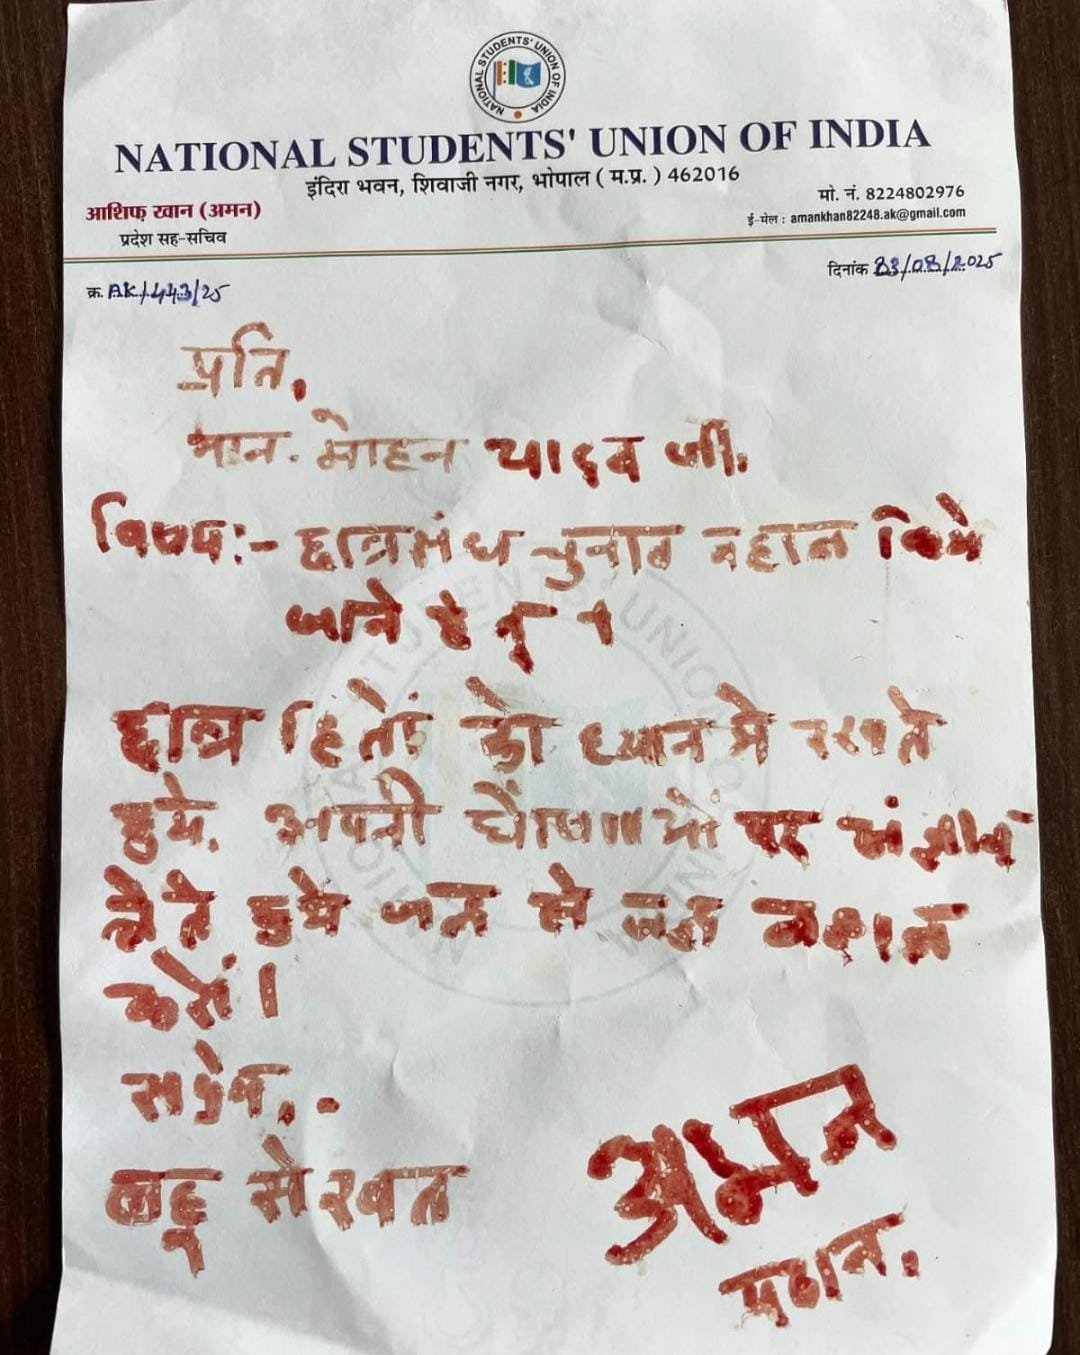 NATIONAL STUDENTS' UNION OF INDIA
NATIONAL STUDENTS' UNION OF INDIA
इंदिरा भवन, शिवाजी नगर, भोपाल ( म.प्र. ) 462016
आशिफ़ खान (अमन)
प्रदेश सह-सचिव
मो. नं. 8224802976
ई-मेल : amankhan82248.ak@gmail.com
क्र. AK/443/25
दिनांक 23/08/2025
प्रति,
मान. मोहन यादव जी,
विषय:- छात्रसंघ चुनाव बहाल किये
जाने हेतु ।
छात्र हितों को ध्यान में रखते
हुये, अपनी घोषणाओं पर
हुये जल्द से जल्द बहाल
करें।
लहू से खत
अमन